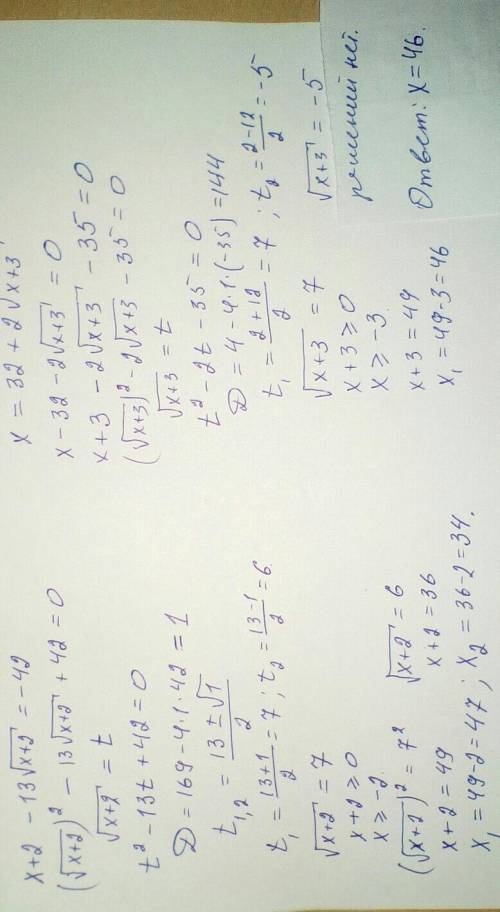 x+2 -13√x+2 = -42
(√x+2)² - 13√x+2 + 42 = 0
√x+2 = t
t² - 13t + 42 = 0
D = 169 - 4·1·42 = 1
t₁,₂ = (13 ± √1)/2
t₁ = (13+1)/2 = 7; t₂ = (13-1)/2 = 6.
√x+2 = 7
x+2 ≥ 0
x ≥ -2
(√x+2)² = 7² √x+2 = 6
x+2 = 49 x+2 = 36
x₁ = 49-2 = 47; x₂ = 36-2 = 34.
x = 32 + 2√x+3
x - 32 - 2√x+3 = 0
x+3 - 2√x+3 - 35 = 0
(√x+3)² - 2√x+3 - 35 = 0
√x+3 = t
t² - 2t - 35 = 0
D = 4 - 4·1·(-35) = 144
t₁ = (2+12)/2 = 7; t₂ = (2-12)/2 = -5
√x+3 = 7 √x+3 = -5
x+3 ≥ 0 решений нет.
x ≥ -3
x+3 = 49
x₁ = 49-3 = 46
Ответ: x = 46.